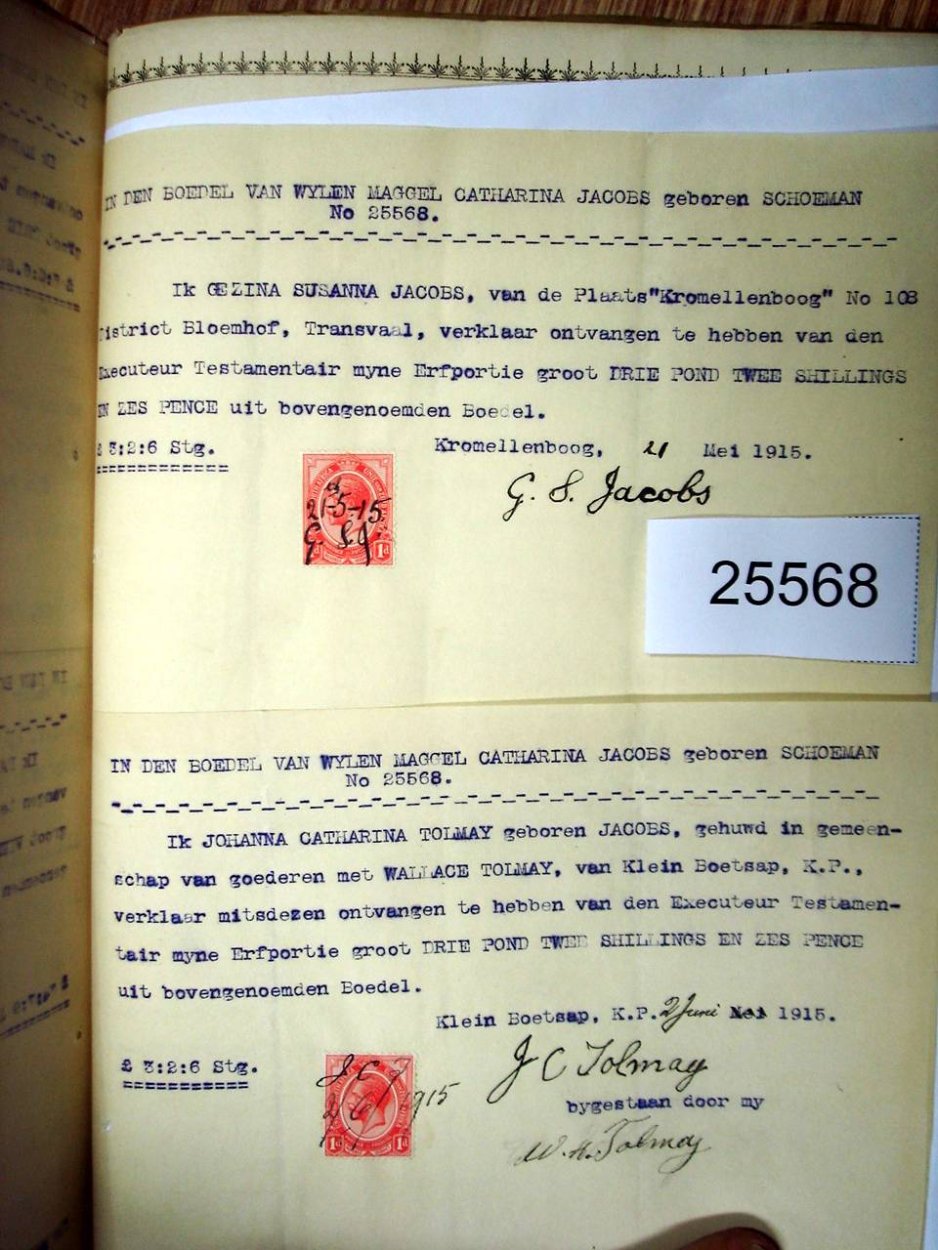 IN DEN BOEDEL VAN WYLEN MAGGEL CATHARINA JACOBS geboren SCHOEMAN
No 25568.
Ik GEZINA SUSANNA JACOBS, van de Plaats"Kromellenboog" No 108
District Bloemhof, Transvaal, verklaar ontvangen te hebben van den
Executeur Testamentair myne Erfportie groot DRIE POND TWEE SHILLINGS
EN ZES PENCE uit bovengenoemden Boedel.
£ 3:2:6 Stg.
Kromellenboog, 21 Mei 1915.
G. S. Jacobs
21-5-15
G. S. J.
1d
25568
IN DEN BOEDEL VAN WYLEN MAGGEL CATHARINA JACOBS geboren SCHOEMAN
No 25568.
Ik JOHANNA CATHARINA TOLMAY geboren JACOBS, gehuwd in gemeen-
schap van goederen met WALLACE TOLMAY, van Klein Boetsap, K.P.,
verklaar mitsdezen ontvangen te hebben van den Executeur Testamen-
tair myne Erfportie groot DRIE POND TWEE SHILLINGS EN ZES PENCE
uit bovengenoemden Boedel.
Klein Boetsap, K.P. 2 Juni Mei 1915.
£ 3:2:6 Stg.
J C Tolmay
bygestaan door my
W. A. Tolmay
J C T
2 6 1915
1d 1d